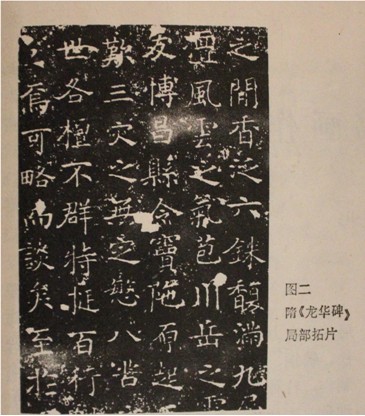 之閒香泛六銖馥滿九
風雲之氣苞川岳之
友博昌縣令竇陁原起
歎三灾之無定愍八
世各擅不群特挺百行
焉可略而談矣至於
图二
隋《龙华碑》
局部拓片